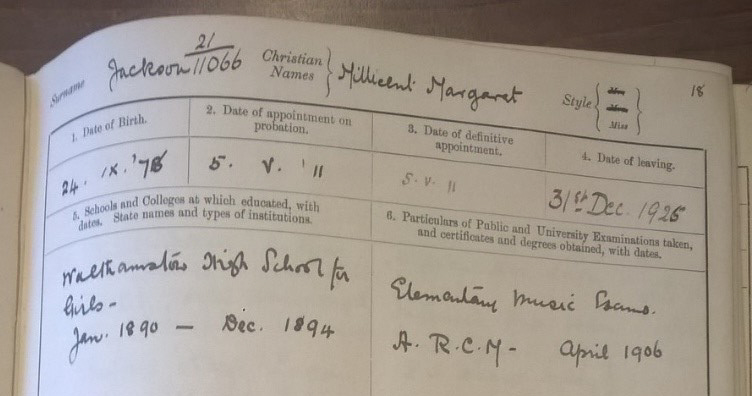 21
Surname Jackson 11066 Christian Names } Millicent Margaret Style { Mr. Mrs. Miss } 18
1. Date of Birth. 2. Date of appointment on probation. 3. Date of definitive appointment. 4. Date of leaving.
24. IX. '78 5. V. '11 5. V. 11 31st Dec. 1925
5. Schools and Colleges at which educated, with dates. State names and types of institutions.
6. Particulars of Public and University Examinations taken, and certificates and degrees obtained, with dates.
Walthamstow High School for
Girls -
Jan. 1890 — Dec. 1894
Elementary Music Exams.
A. R. C. M - April 1906